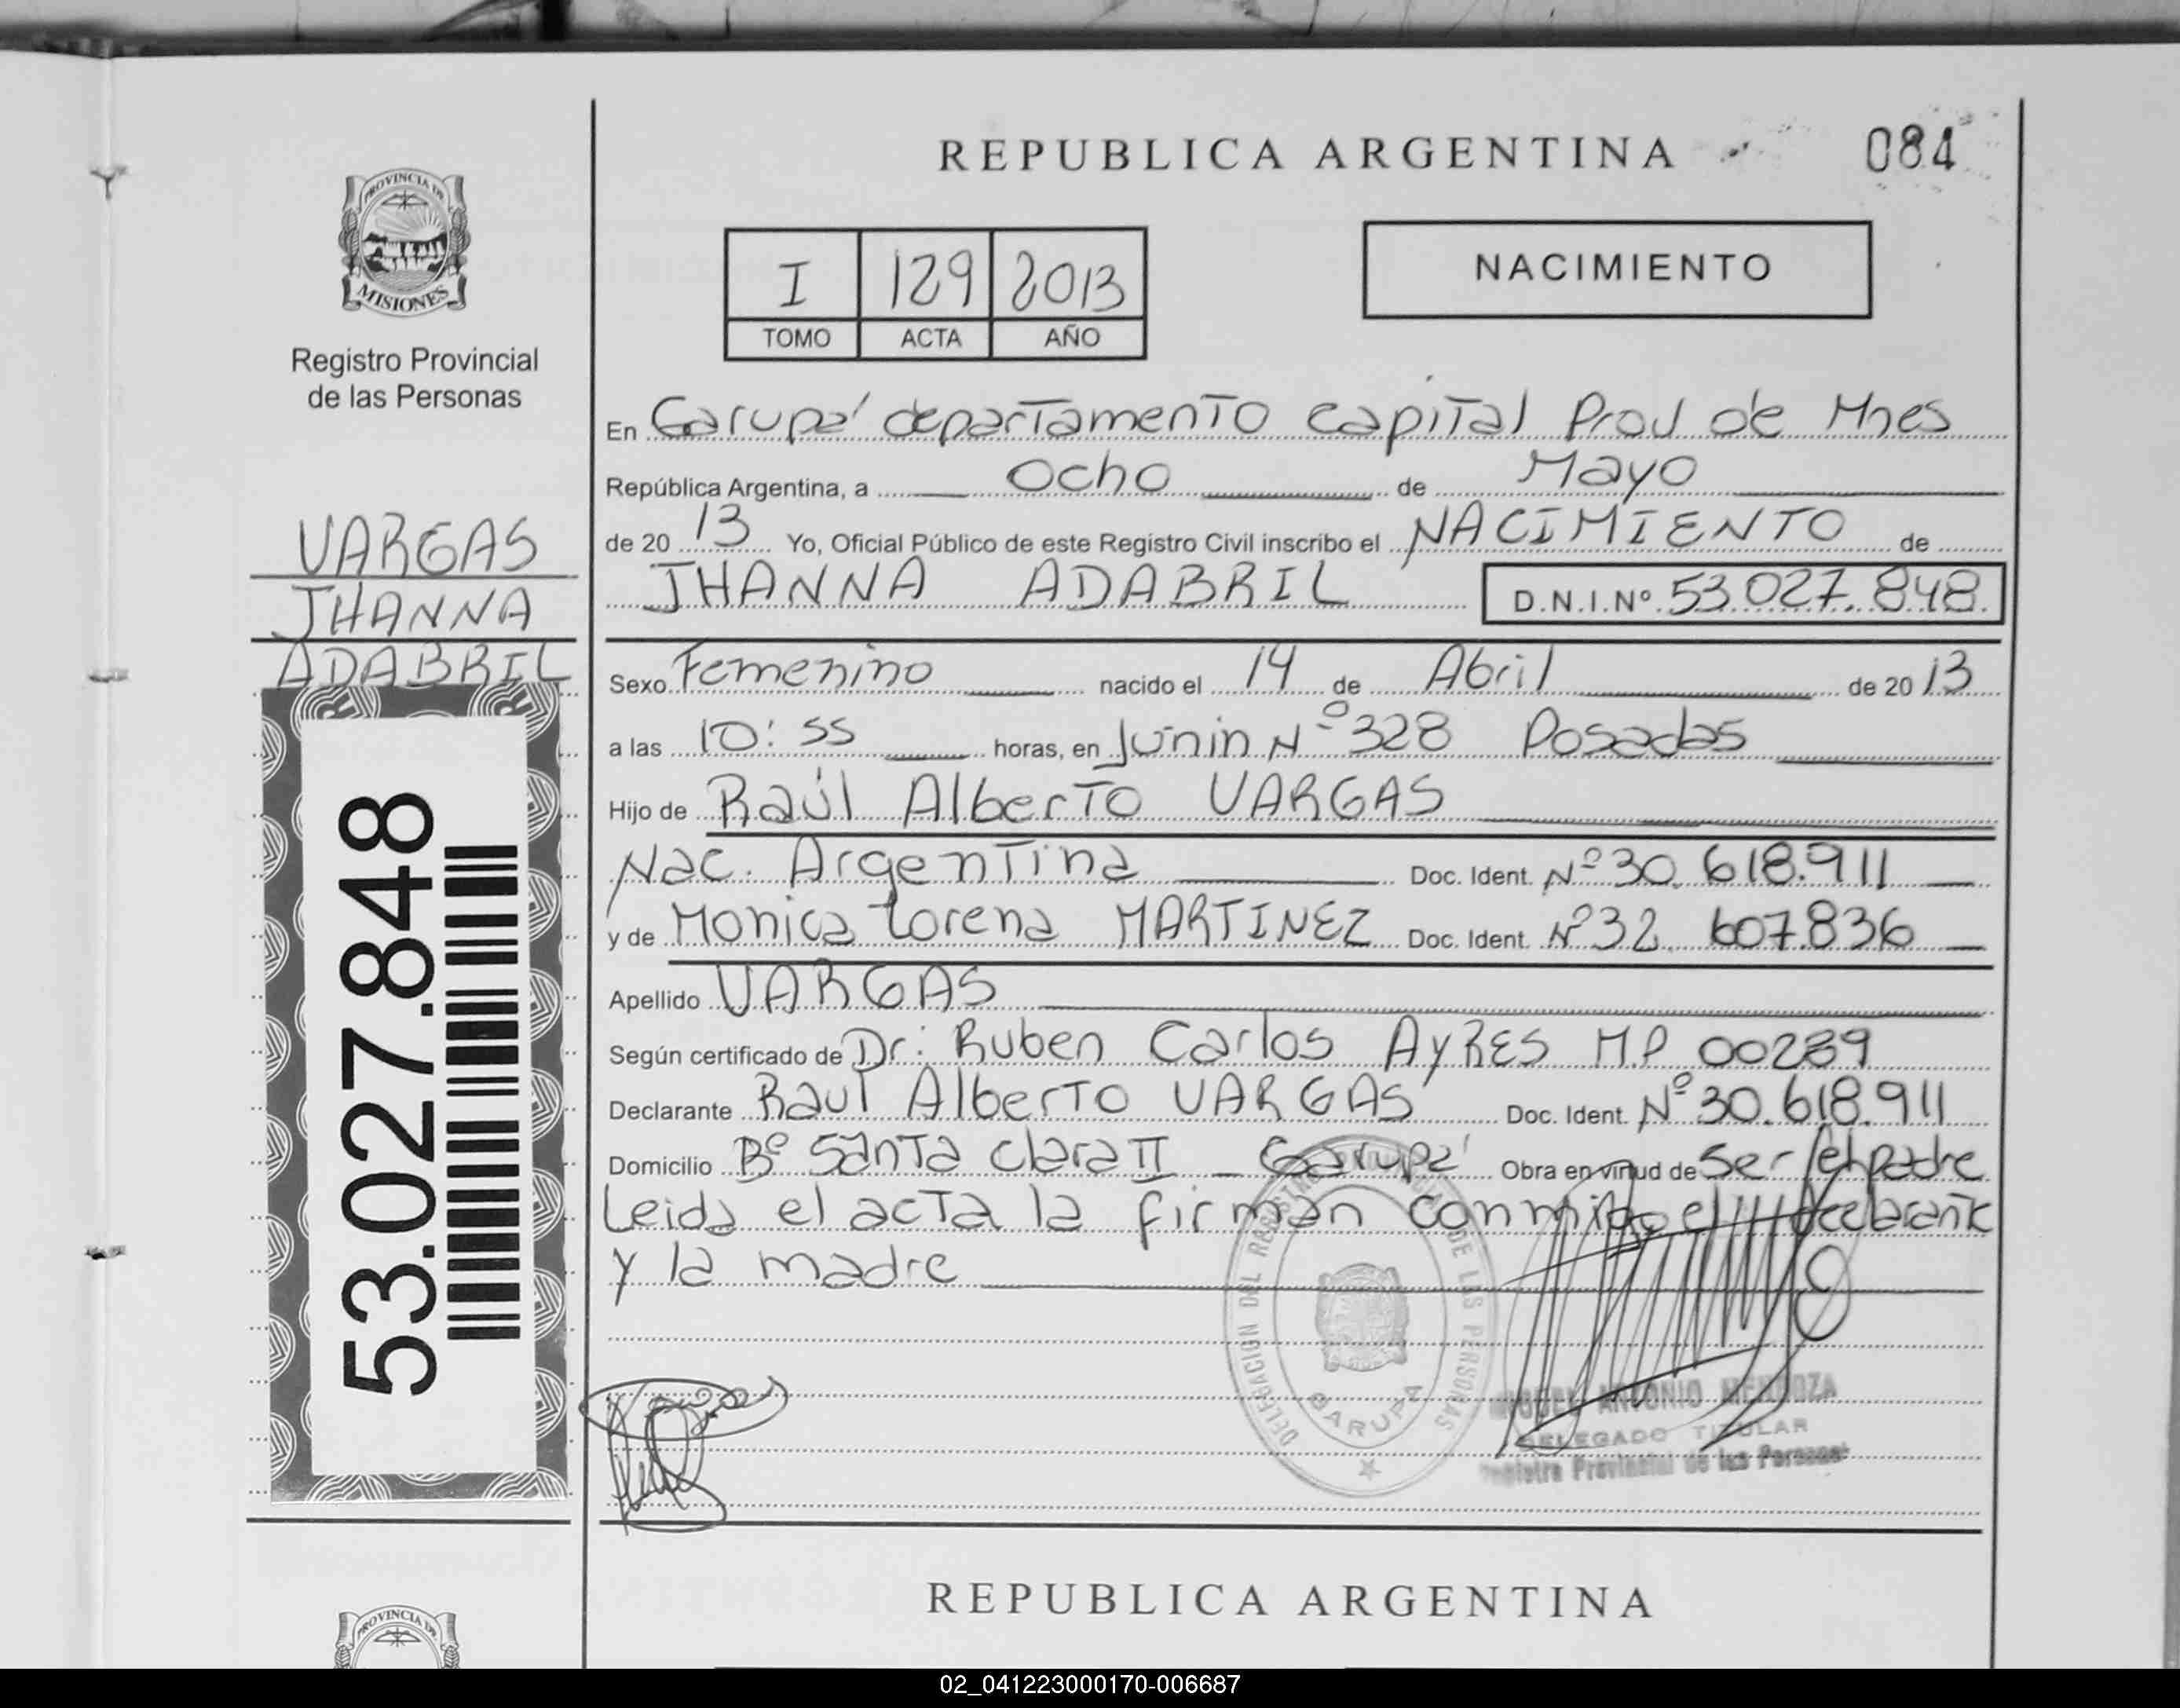 REPUBLICA ARGENTINA
084
PROVINCIA DE
MISIONES
Registro Provincial
de las Personas
VARGAS
JHANNA
ADABRIL
53.027.848
I 129 2013
TOMO ACTA AÑO
NACIMIENTO
En Garupá departamento capital Prov de Mnes
República Argentina, a Ocho de Mayo
de 20 13 Yo, Oficial Público de este Registro Civil inscribo el NACIMIENTO de
JHANNA ADABRIL D.N.I.Nº 53.027.848.
Sexo Femenino nacido el 14 de Abril de 20 13
a las 10:55 horas, en Junin Nº 328 Posadas
Hijo de Raúl Alberto VARGAS
Nac. Argentina Doc. Ident. Nº 30.618.911
y de Monica Lorena MARTINEZ Doc. Ident. Nº 32.607.836
Apellido VARGAS
Según certificado de Dr: Ruben Carlos AYRES M.P 00289
Declarante Raul Alberto VARGAS Doc. Ident. Nº 30.618.911
Domicilio Bº Santa Clara II - Garupá Obra en virtud de Ser el padre
Leida el acta la firman conmigo el declarante
y la madre
DELEGACION DEL REGISTRO PROVINCIAL DE LAS PERSONAS
GARUPA
MIGUEL ANTONIO MENDOZA
DELEGADO TITULAR
Registro Provincial de las Personas
REPUBLICA ARGENTINA
PROVINCIA DE
02_041223000170-006687